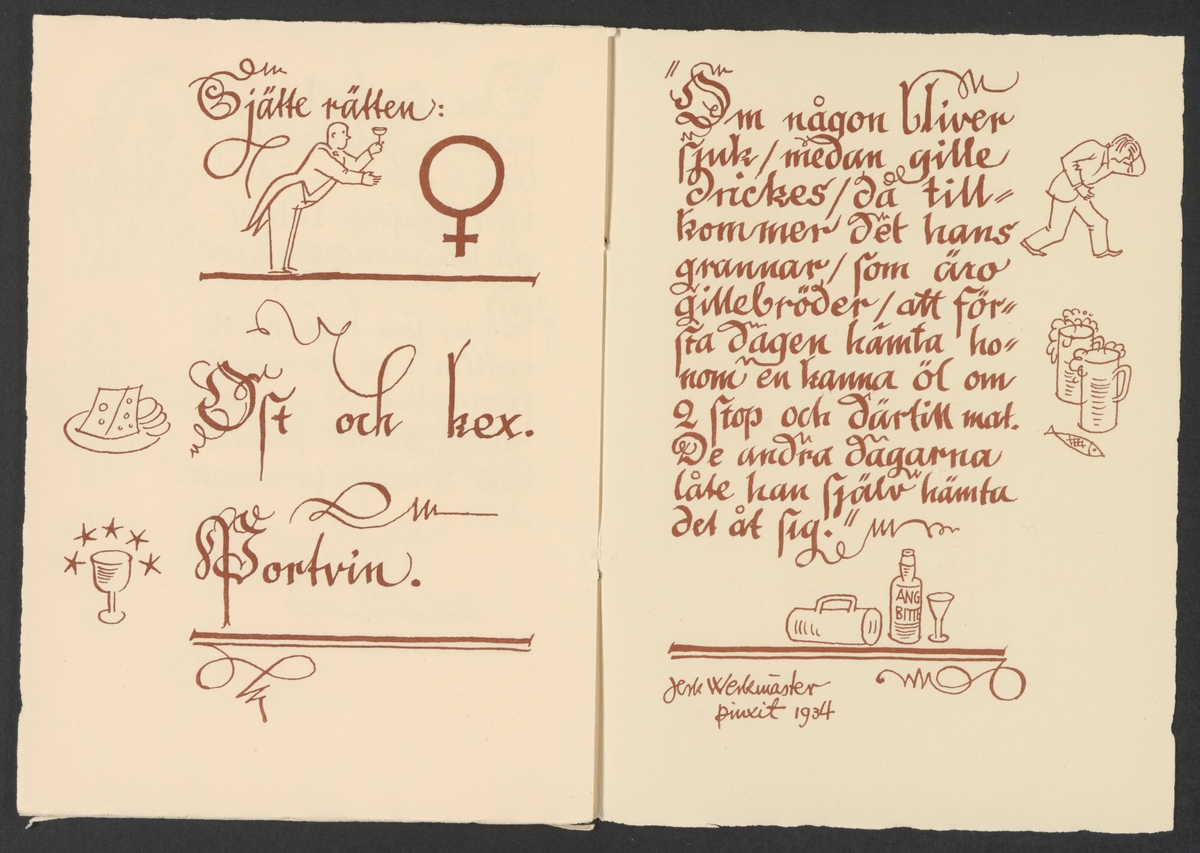 Sjätte rätten:
Ost och kex.
Portvin.
"Om någon bliver
sjuk/medan gille
drickes/då till=
kommer det hans
grannar/som äro
gillebröder/att för=
sta dagen hämta ho=
nom en kanna öl om
2 stop och därtill mat.
De andra dagarna
låte han själv hämta
det åt sig."
ANG
BITTE
Jerk Werkmäster
pinxit 1934